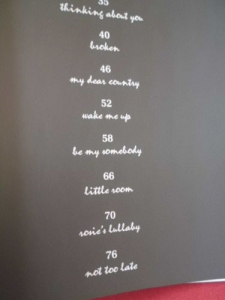 35
thinking about you
40
broken
46
my dear country
52
wake me up
58
be my somebody
66
little room
70
rosie's lullaby
76
not too late